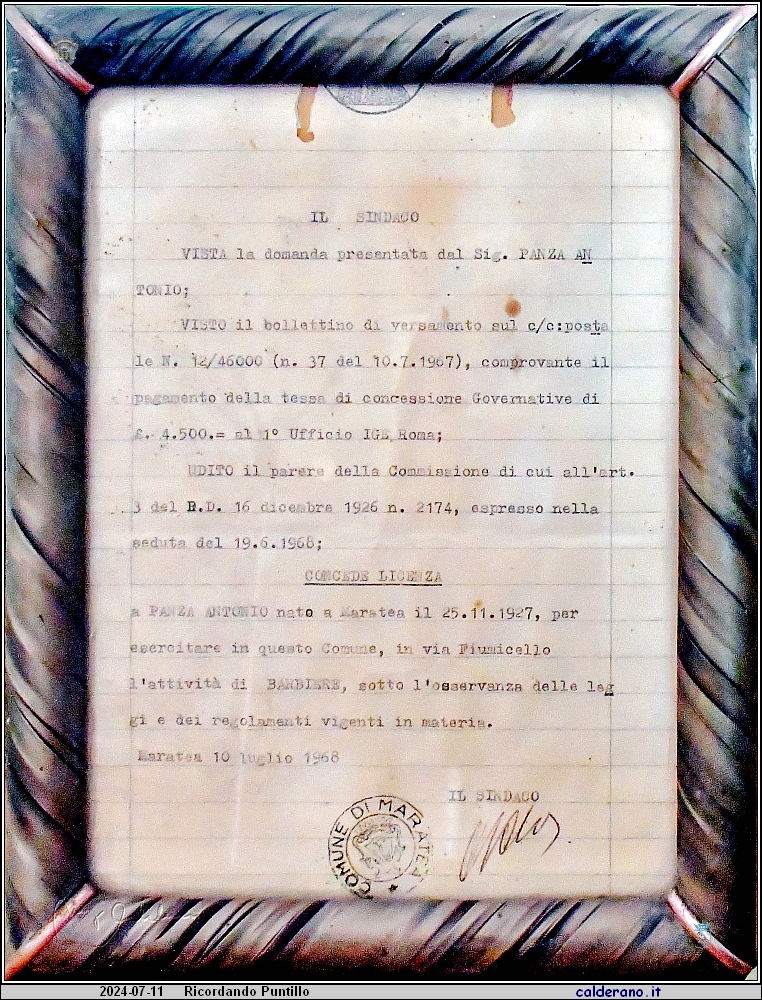 IL SINDACO
VISTA la domanda presentata dal Sig. PANZA AN
TONIO;
VISTO il bollettino di versamento sul c/c:posta
le N. 12/46000 (n. 37 del 10.7.1967), comprovante il
pagamento della tessa di concessione Governative di
£. 4.500.= al 1° Ufficio IGE Roma;
UDITO il parere della Commissione di cui all'art.
3 del R.D. 16 dicembre 1926 n. 2174, espresso nella
seduta del 19.6.1968;
CONCEDE LICENZA
a PANZA ANTONIO nato a Maratea il 25.11.1927, per
esercitare in questo Comune, in via Fiumicello
l'attività di BARBIERE, sotto l'osservanza delle leg
gi e dei regolamenti vigenti in materia.
Maratea 10 luglio 1968
IL SINDACO
COMUNE DI MARATEA
2024-07-11 Ricordando Puntillo calderano.it